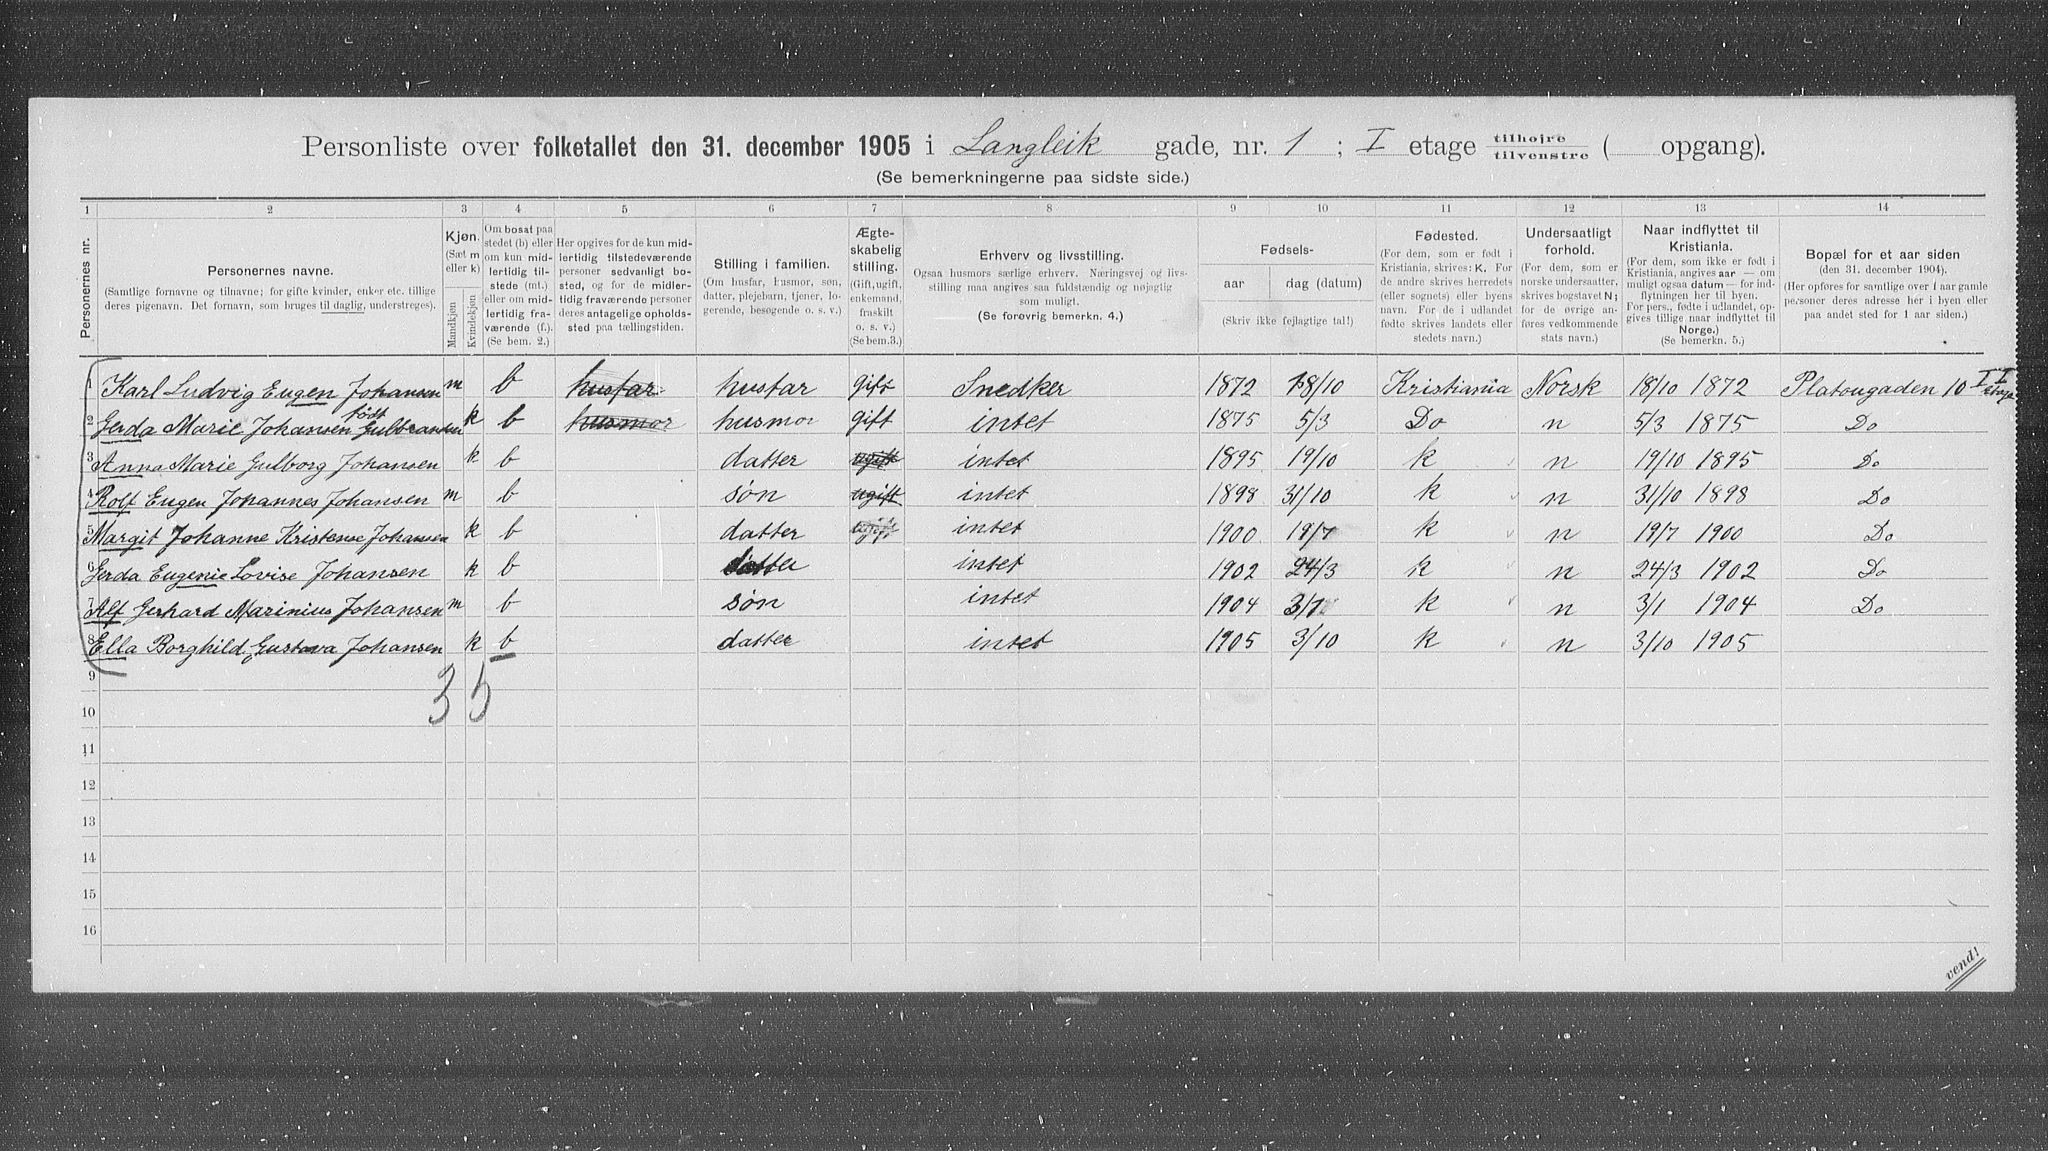 Personliste over folketallet den 31. december 1905 i Langleik gade, nr. 1 ; I etage tilhøjre / tilvenstre ( opgang).
(Se bemerkningerne paa sidste side.)
1 2 3 4 5 6 7 8 9 10 11 12 13 14
Personernes nr.
Personernes navne.
(Samtlige fornavne og tilnavne; for gifte kvinder, enker etc. tillige
deres pigenavn. Det fornavn, som bruges til daglig, understreges).
Kjøn.
(Sæt m
eller k)
Mandkjøn
Kvindekjøn
Om bosat paa
stedet (b) eller
om kun mid-
lertidig til-
stede (mt.)
eller om mid-
lertidig fra-
værende (f.).
(Se bem. 2.)
Her opgives for de kun mid-
lertidig tilstedeværende
personer sedvanligt bo-
sted, og for de midler-
tidig fraværende personer
deres antagelige opholds-
sted paa tællingstiden.
Stilling i familien.
(Om husfar, husmor, søn,
datter, plejebarn, tjener, lo-
gerende, besøgende o. s. v.)
Ægte-
skabelig
stilling.
(Gift, ugift,
enkemand,
fraskilt
o. s. v.)
(Se bem.3.)
Erhverv og livsstilling.
Ogsaa husmors særlige erhverv. Næringsvej og livs-
stilling maa angives saa fuldstændig og nøjagtig
som muligt.
(Se forøvrig bemerkn. 4.)
Fødsels-
aar
dag (datum)
(Skriv ikke fejlagtige tal!)
Fødested.
(For dem, som er født i
Kristiania, skrives: K. For
de andre skrives herredets
(eller sognets) eller byens
navn. For de i udlandet
fødte skrives landets eller
stedets navn.)
Undersaatligt
forhold.
(For dem, som er
norske undersaatter,
skrives bogstavet N;
for de øvrige an-
føres vedkommende
stats navn.)
Naar indflyttet til
Kristiania.
(For dem, som ikke er født i
Kristiania, angives aar — om
muligt ogsaa datum — for ind-
flytningen her til byen.
For pers., fødte i udlandet, op-
gives tillige naar indflyttet til
Norge.)
(Se bemerkn. 5.)
Bopæl for et aar siden
(den 31. december 1904).
(Her opføres for samtlige over 1 aar gamle
personer deres adresse her i byen eller
paa andet sted for 1 aar siden.)
1 Karl Ludvig Eugen Johansen m b husfar husfar gift Snedker 1872 18/10 Kristiania Norsk 18/10 1872 Platougaden 10 II etage
født
2 Gerda Marie Johansen Gulbransen k b husmor husmor gift intet 1875 5/3 Do n 5/3 1875 Do
3 Anna Marie Gulborg Johansen k b datter ugift intet 1895 19/10 k n 19/10 1895 Do
4 Rolf Eugen Johannes Johansen m b søn ugift intet 1898 31/10 k n 31/10 1898 Do
5 Margit Johanne Kristense Johansen k b datter ugift intet 1900 19/7 k n 19/7 1900 Do
6 Gerda Eugenie Lovise Johansen k b datter intet 1902 24/3 k n 24/3 1902 Do
7 Alf Gerhard Marinius Johansen m b søn intet 1904 3/1 k n 3/1 1904 Do
8 Ella Borghild Gustava Johansen k b datter intet 1905 3/10 k n 3/10 1905
9
3 5
10
11
12
13
14
15
16
vend!